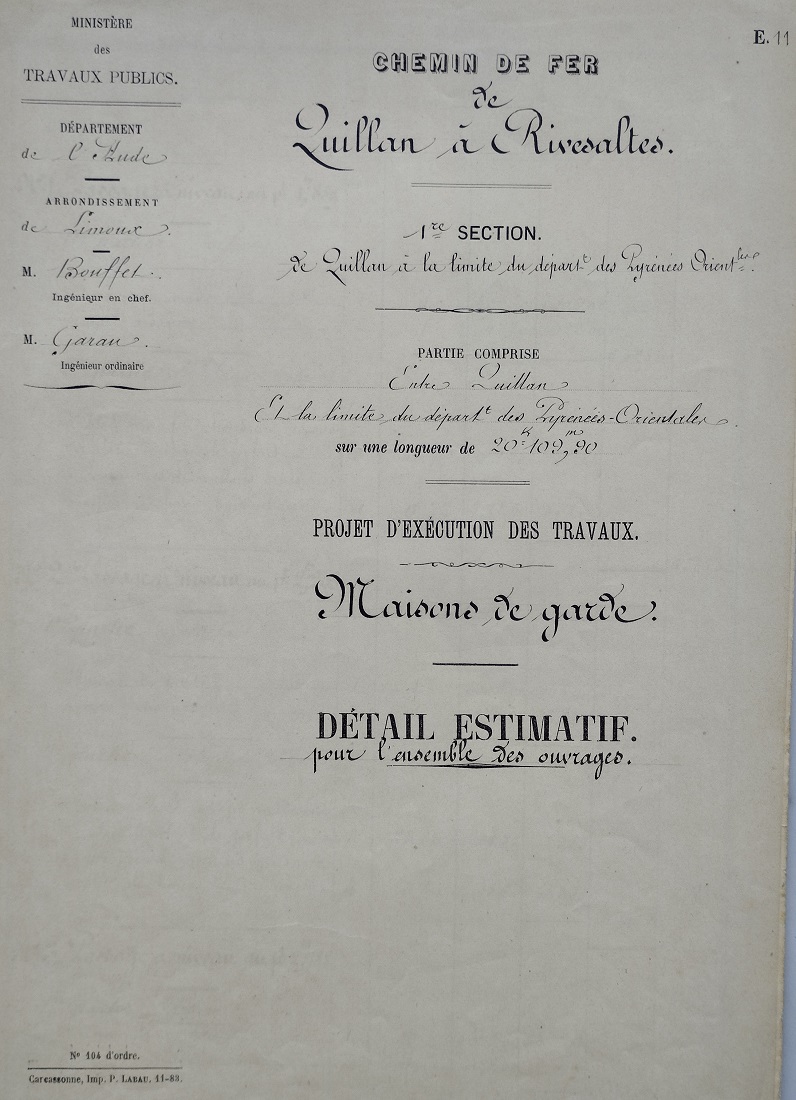 MINISTÈRE
des
TRAVAUX PUBLICS.
DÉPARTEMENT
de l'Aude
ARRONDISSEMENT
de Limoux.
M. Bouffet.
Ingénieur en chef.
M. Garau.
Ingénieur ordinaire
E. 11
CHEMIN DE FER
de
Quillan à Rivesaltes.
1re SECTION.
de Quillan à la limite du départt des Pyrénées Orientles.
PARTIE COMPRISE
Entre Quillan
Et la limite du départt des Pyrénées-Orientales.
sur une longueur de 20k109m,90
PROJET D'EXÉCUTION DES TRAVAUX.
Maisons de garde.
DÉTAIL ESTIMATIF.
pour l'ensemble des ouvrages.
No 104 d'ordre.
Carcassonne, Imp. P. LABAU. 11-83.